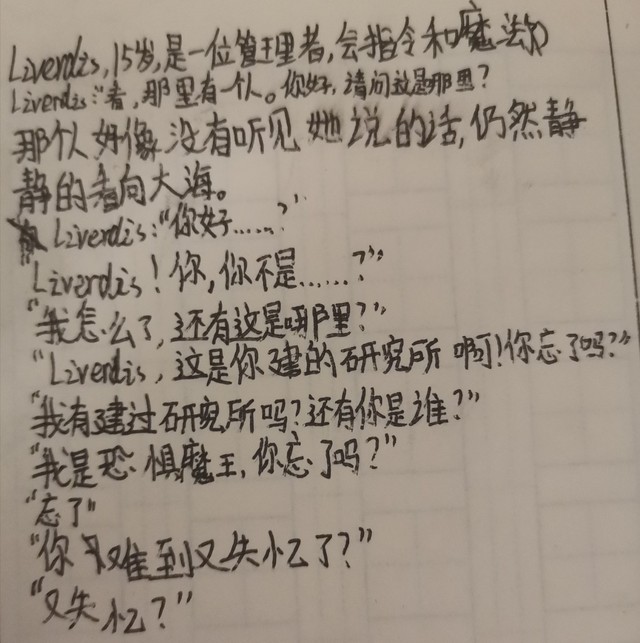 Liverdis,15岁,是一位管理者,会指令和魔法的
Liverdis:"看,那里有一个人。你好,请问这是那里?
那个人好像没有听见她说的话,仍然静
静的看向大海。
Liverdis:"你好……?"
"Liverdis!你,你不是……?"
"我怎么了,还有这是哪里?"
"Liverdis,这是你建的研究所啊!你忘了吗?"
"我有建过研究所吗?还有你是谁?"
"我是恐惧魔王,你忘了吗?"
"忘了"
"你难到又失忆了?"
"又失忆?"